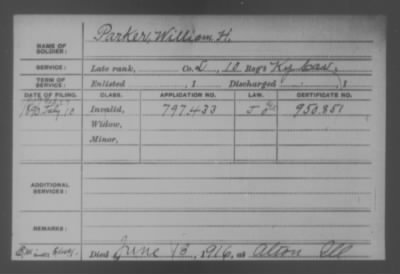 NAME OF SOLDIER: Parker, William H.
SERVICE: Late rank, Co. D, 10 Reg't Ky Cav.
TERM OF SERVICE: Enlisted , 1 Discharged , 1
DATE OF FILING. CLASS. APPLICATION NO. LAW. CERTIFICATE NO.
July 10 Invalid, 797.433 950.851
Widow,
Minor,
ADDITIONAL SERVICES:
REMARKS:
Died June 13, 1916, at Alton Ill